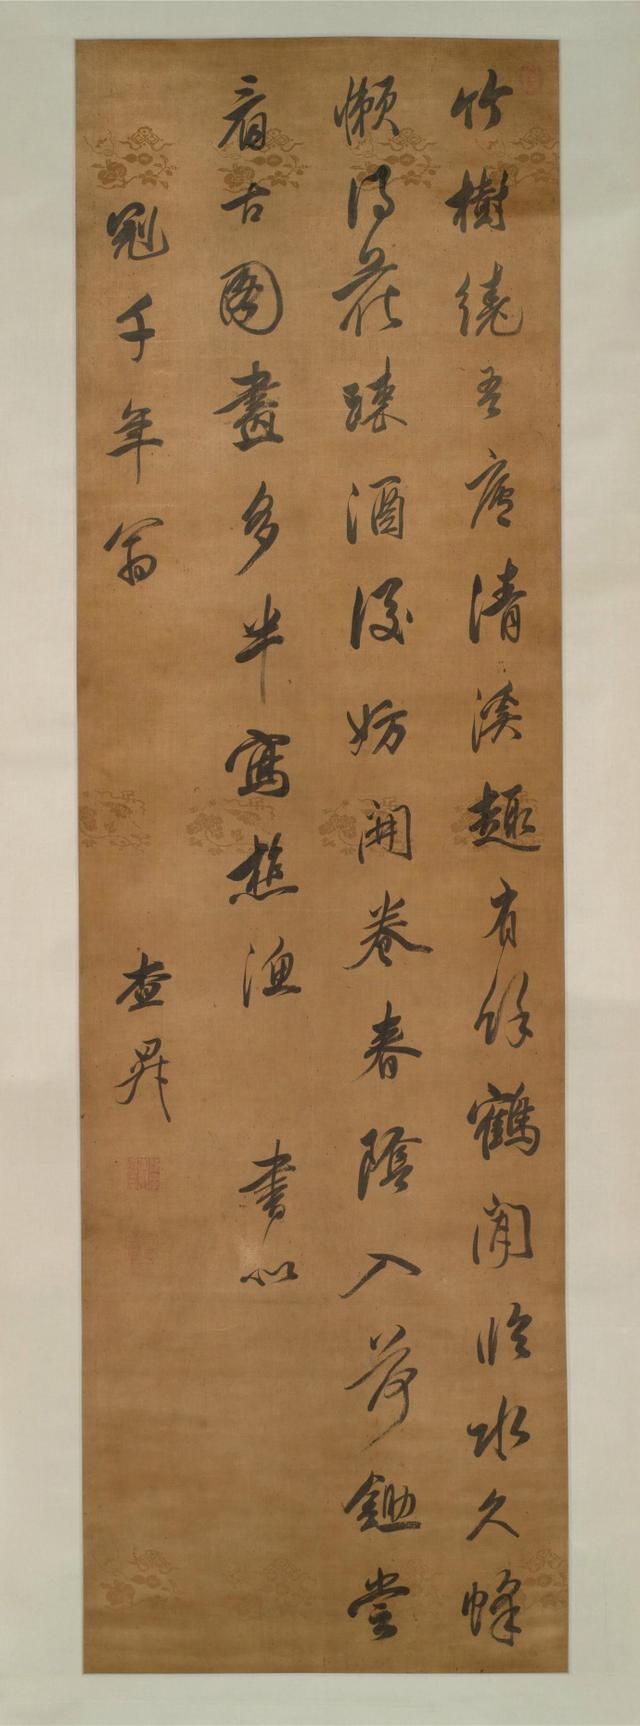 竹樹繞吾廬清溪趣有餘鶴閒臨水久蜂
懶得花踈酒後妨開卷春陰入荷鋤嘗
看古圖畫多半寫樵漁 書似
冠千年翁
查昇